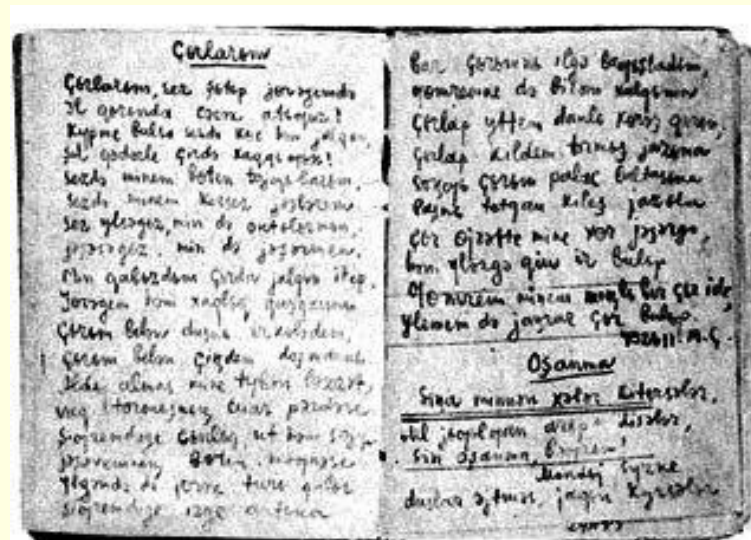 Çьrlarьm
Çьrlarьm, sez şьtьp jөrəgemdə
Il qьrьnda cəcək atьgьz!
Kypme bulsa sezdə kөc həm jalqьn,
Şul qədərle çirdə xaqqьgьz!
Sezdə minem bөten tojgьlarьm,
Sezdə minem kersez jəşlərem
Sez ylsəgez, min də onьtьlьrmьn,
jəşəsəgez, min də jəşərmen.
Min qabьzdьm çьrda jalqьn itep
Jөrəgem həm xaqlьq quşqannь
Çьrьm belən dusnь irkələdem,
Çьrьm belən çiŋdem doşmannь.
almas mine tybən ləzzət,
vaq tormьşnьŋ cuar pərdəse
Şigьremdəge cьnlьq, ut həm sөjy
jəşəvemneŋ bөten məgnəse.
Ylgəndə də jөrək turь qalьr
Şigьremdəge izge antьna
Bar çьrьmnь ilgə bagьşladьm,
Gomremne də
Çьrlap yttem danlь kөrəş qьrьn,
Çьrlap kildem tormьş jazьna
Soŋgь çьrьm palac baltasьna
Başnь totqan kileş jazьla
Çьr өjrətte mine xөr jəşərgə,
həm ylərgə qьju ir bulьp
Gomrem minem moŋlь ber çьr ide,
Ylemem də jaŋrar çьr bulьp.
M.Ç.
Oşanma
Siŋa minnən xəbər kitersələr,
disələr,
Sin oşanma,
Mondьj syzne
duslar əjtməs, jaqьn kyrsələr